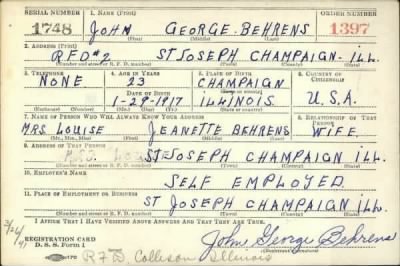 SERIAL NUMBER 1. NAME (Print) ORDER NUMBER
1748 JOHN GEORGE BEHRENS 1397
(First) (Middle) (Last)
2. ADDRESS (Print)
RFD#2 ST JOSEPH CHAMPAIGN ILL.
(Number and street or R. F. D. number) (Town) (County) (State)
3. TELEPHONE 4. AGE IN YEARS 5. PLACE OF BIRTH 6. COUNTRY OF CITIZENSHIP
NONE 23 CHAMPAIGN
DATE OF BIRTH (Town or county)
1-29-1917 ILLINOIS U.S.A.
(Exchange) (Number) (Mo.) (Day) (Yr.) (State or country)
7. NAME OF PERSON WHO WILL ALWAYS KNOW YOUR ADDRESS 8. RELATIONSHIP OF THAT PERSON
MRS LOUISE JEANETTE BEHRENS WIFE
(Mr., Mrs., Miss) (First) (Middle) (Last)
9. ADDRESS OF THAT PERSON
ST JOSEPH CHAMPAIGN ILL.
(Number and street or R. F. D. number) (Town) (County) (State)
10. EMPLOYER'S NAME
SELF EMPLOYED
11. PLACE OF EMPLOYMENT OR BUSINESS
ST JOSEPH CHAMPAIGN ILL.
(Number and street or R. F. D. number) (Town) (County) (State)
I AFFIRM THAT I HAVE VERIFIED ABOVE ANSWERS AND THAT THEY ARE TRUE.
REGISTRATION CARD
D. S. S. Form 1
John George Behrens
Collison Illinois